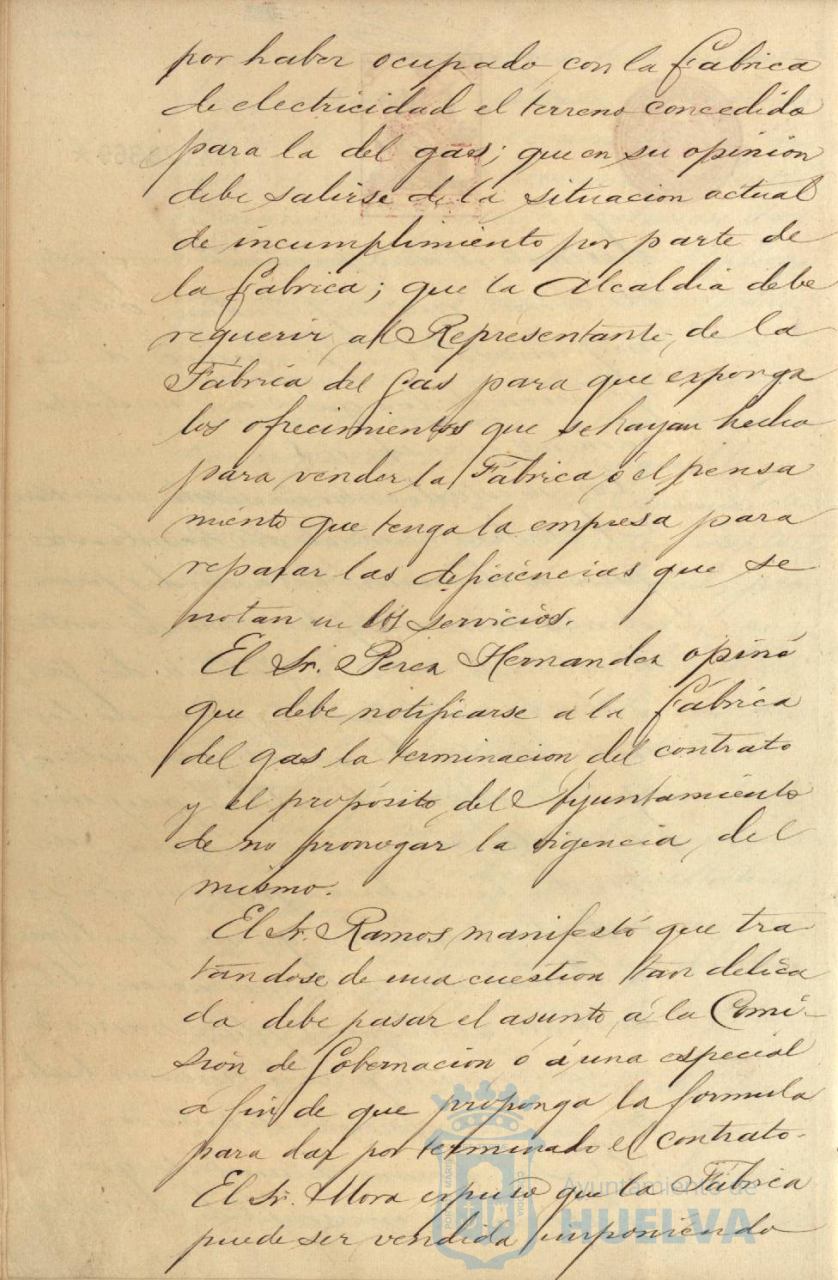 por haber ocupado con la fabrica
de electricidad el terreno concedido
para la del gas; que en su opinion
debe salirse de la situacion actual
de incumplimiento por parte de
la fabrica; que la Alcaldia debe
requerir al Representante de la
Fábrica del Gas para que exponga
los ofrecimientos que se hayan hecho
para vender la Fábrica ó el pensa
miento que tenga la empresa para
reparar las deficiencias que se
notan en los servicios.
El Sr. Perez Hernandez opinó
que debe notificarse á la fábrica
del gas la terminacion del contrato
y el propósito del Ayuntamiento
de no prorrogar la vigencia del
mismo.
El Sr. Ramos manifestó que tra
tándose de una cuestion tan delica
da debe pasar el asunto á la Comi-
sión de Gobernacion ó á una especial
á fin de que proponga la formula
para dar por terminado el contrato.
El Sr. Mora expuso que la Fábrica
puede ser vendida imponiendo
Ayuntamiento de
HUELVA